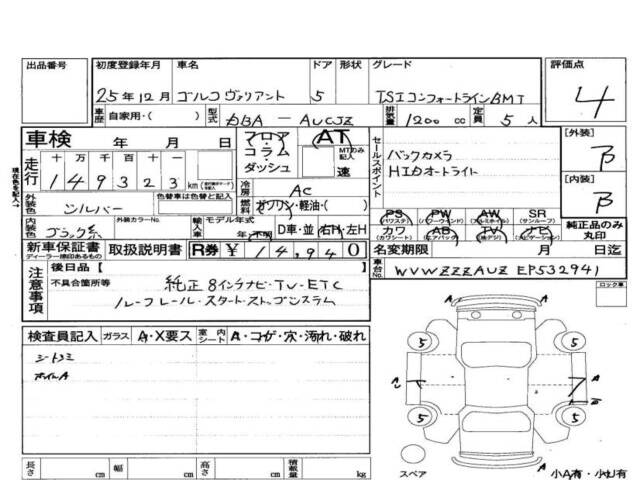 出品番号 初度登録年月 車名 ドア 形状 グレード 評価点
25年12月 ゴルフ ヴァリアント 5 TSIコンフォートラインBMT 4
車歴 自家用・( ) 型式 DBA — AUCJZ 排気量 1200 cc 定員 5 人
車検 年 月 日 フロア・コラム・ダッシュ AT MTのみ記入 速
走行 十 万 千 百 十 一
149323 km
セールスポイント
バックカメラ
HIDオートライト
[外装] B
[内装] B
現在色を記入→
外装色 シルバー 色替車は色替と記入 冷房 AC
燃料 ガソリン・軽油・( )
内装色 ブラック系 外装カラーNo. 輸入車 モデル年式 年・不明 D車・並 右H・左H
PS (パワステ) PW (パワーウインド) AW (アルミホイル) SR (サンルーフ)
カワ (カワシート) AB (エアバック) TV (地デジ) ナビ (ナビゲーション) 純正品のみ丸印
新車保証書 ディーラー捺印あるもの 取扱説明書 R券 ¥ 14,940 名変期限 月 日迄
注意事項 後日品 [ ] 車台No. WVWZZZAUZ EP532941
不具合箇所等 純正8インチナビ・TV・ETC
ルーフレール・スタートストップシステム
ロック車
検査員記入 ガラス A・X要ス 室内シート A・コゲ・穴・汚れ・破れ
シートスミ
ホイルA
A
5 5
A
A
5 5
A
長さ cm 幅 cm 高さ cm 積載量 kg
スペア 小A有・小U有